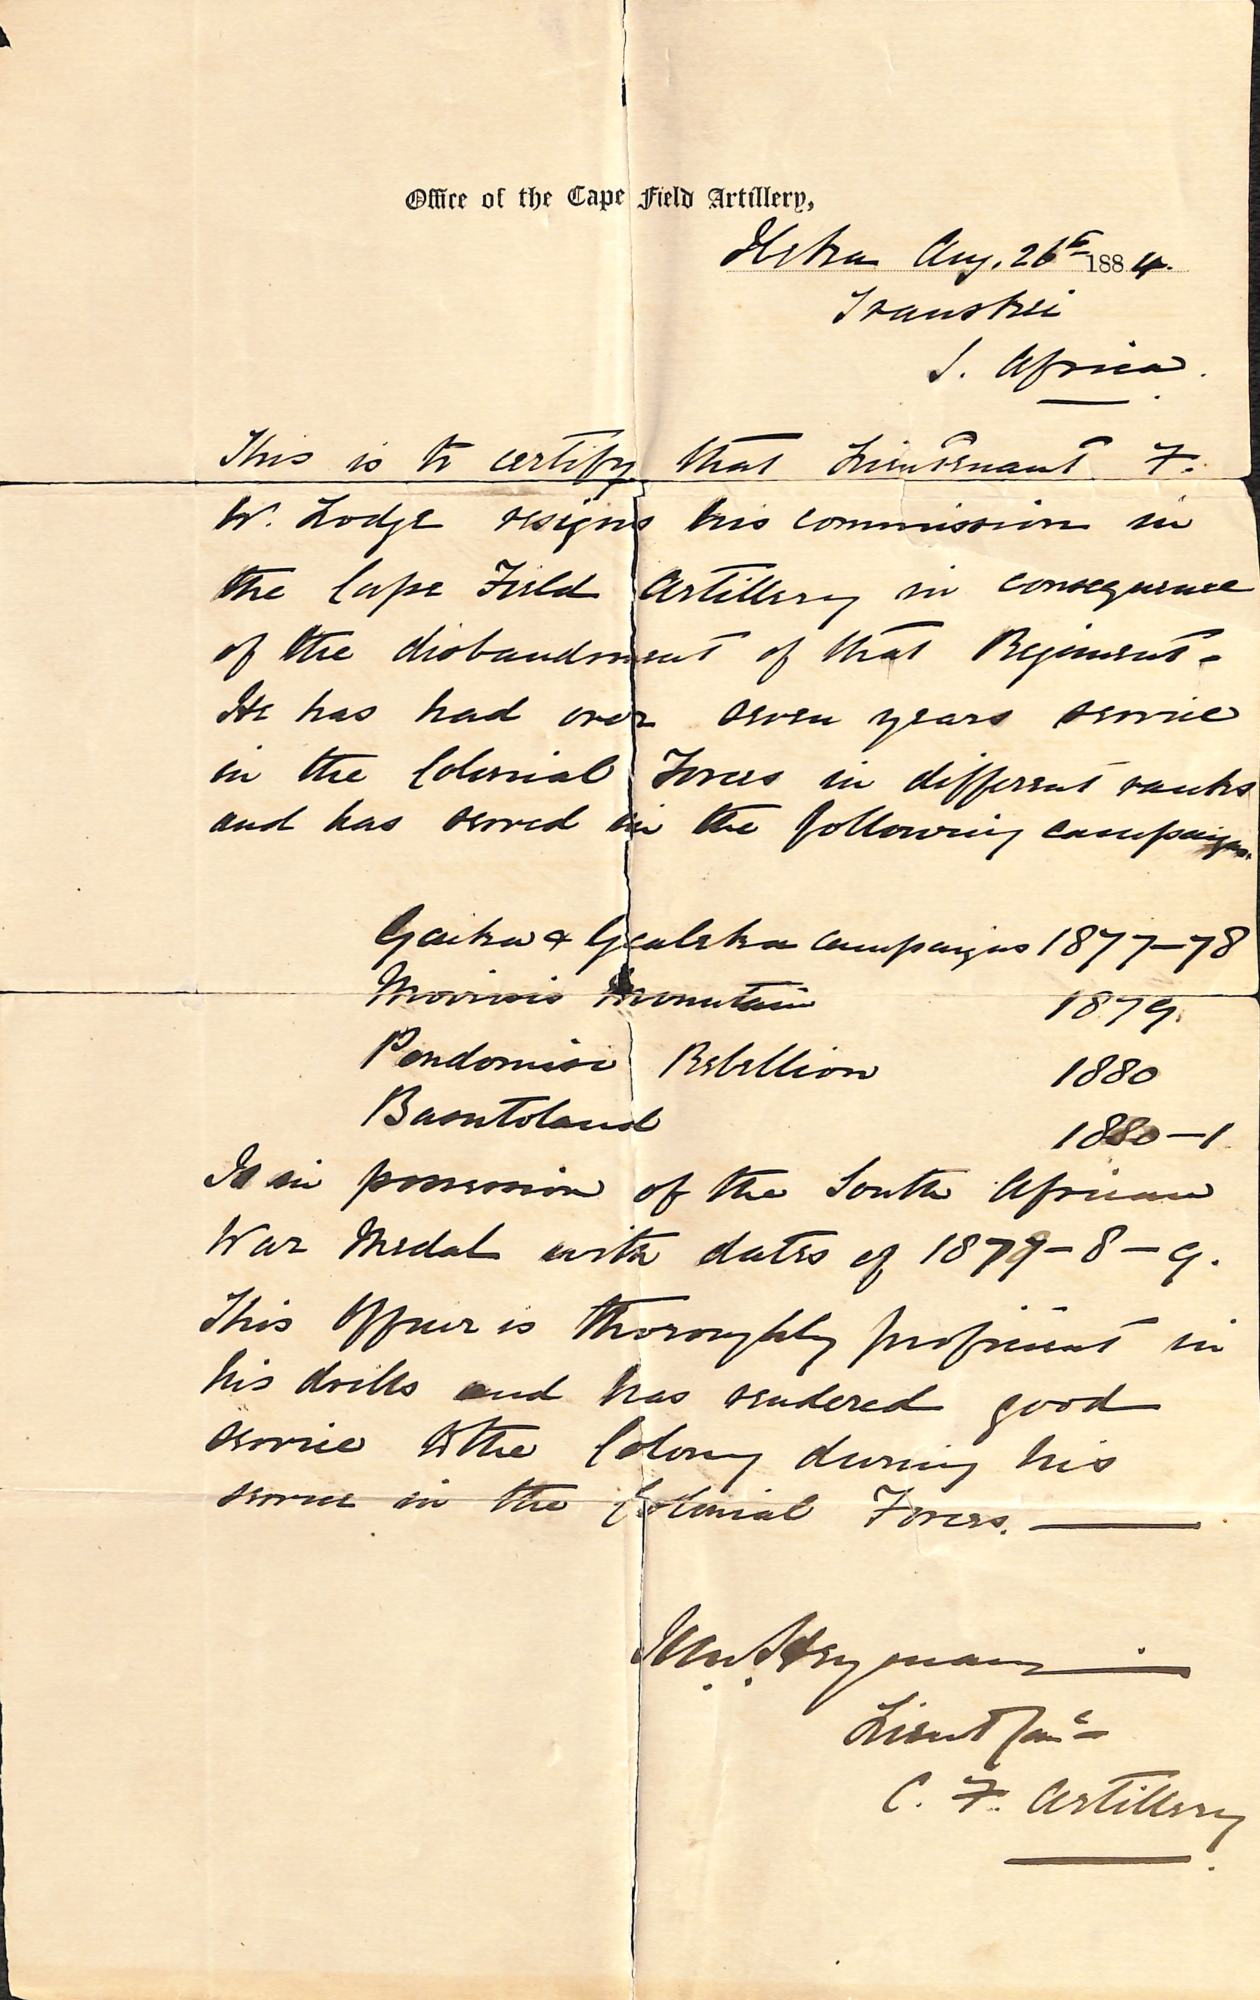 Office of the Cape Field Artillery,
Aug. 26th 1884.
Transkei
S. Africa.
This is to certify that Lieutenant F.
W. Lodge resigns his commission in
the Cape Field Artillery in consequence
of the disbandment of that Regiment.
He has had over seven years service
in the Colonial Forces in different ranks
and has served in the following campaigns.
Gaika & Gcaleka campaigns 1877-78
Morosis Mountain 1879.
Pondomise Rebellion 1880
Basutoland 1880-1
Is in possession of the South African
War Medal with dates of 1879-8-9.
This Officer is thoroughly proficient in
his drills and has rendered good
service to the Colony during his
service in the Colonial Forces.
Heyman
Lieut
C. F. Artillery